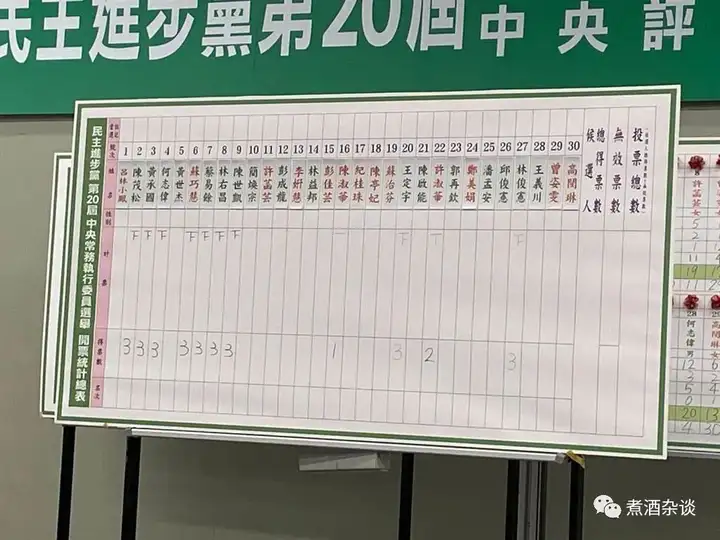 民主進步黨第20屆中央評
民主進步黨 第20屆 中央常務執行委員選舉 開票統計總表
號次 1 2 3 4 5 6 7 8 9 10 11 12 13 14 15 16 17 18 19 20 21 22 23 24 25 26 27 28 29 30
姓名 呂林小鳳 陳茂松 黃承國 何志偉 黃世杰 蘇巧慧 蔡易餘 林右昌 陳世凱 簡煥宗 許菡芸 彭成龍 李妍慧 林益邦 彭佳芸 陳淑華 紀桂珠 陳亭妃 蘇治芬 王定宇 陳啟能 許淑華 郭再欽 鄭美娟 潘孟安 邱俊憲 林俊憲 王義川 曾姿雯 高閔琳
候選人總得票數
無效票數
投票總數
性別
計票
得票數 3 3 3 3 3 3 3 1 3 2 3
名次
許菡芸女
何志偉男
12
20
4
煮酒杂谈